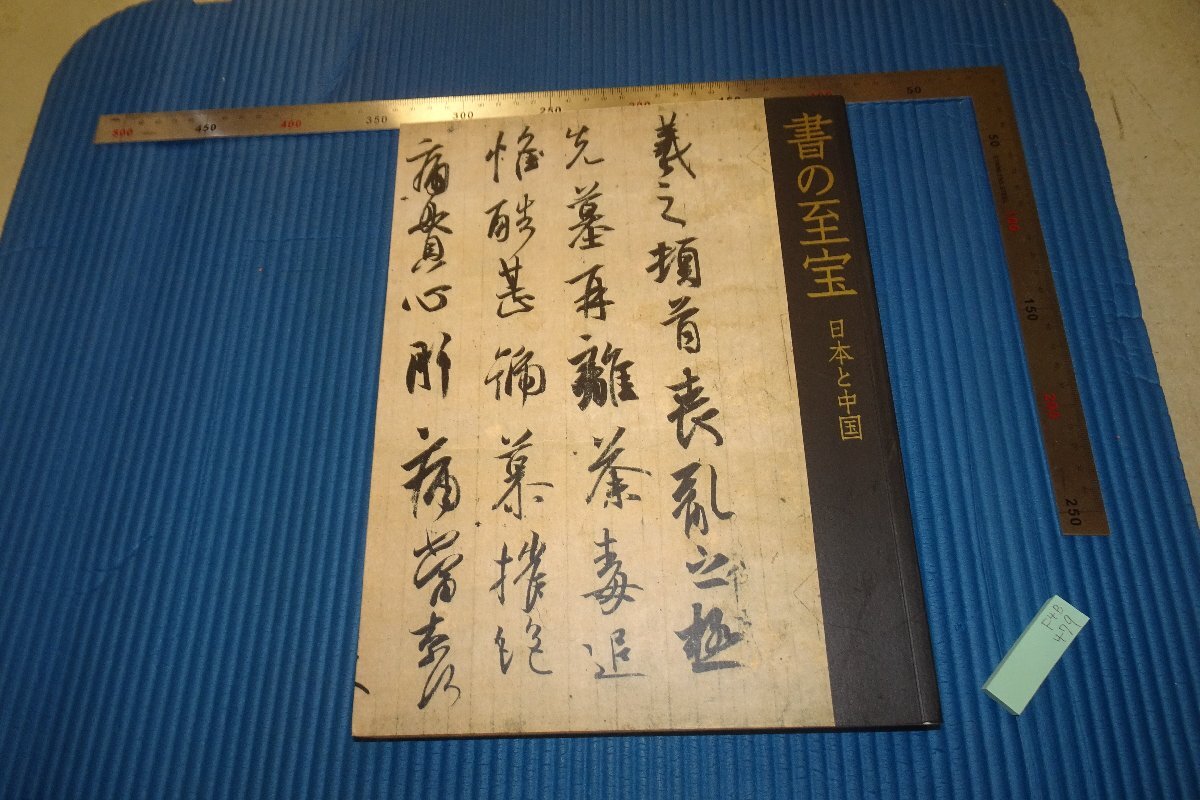 書の至宝
日本と中国
羲之頓首喪亂之極
先墓再離荼毒追
惟酷甚號慕摧絶
痛貫心肝痛當奈何
500 450 400 350 300 250 200 150 100 50
50
100
150
200
250
F+B
479